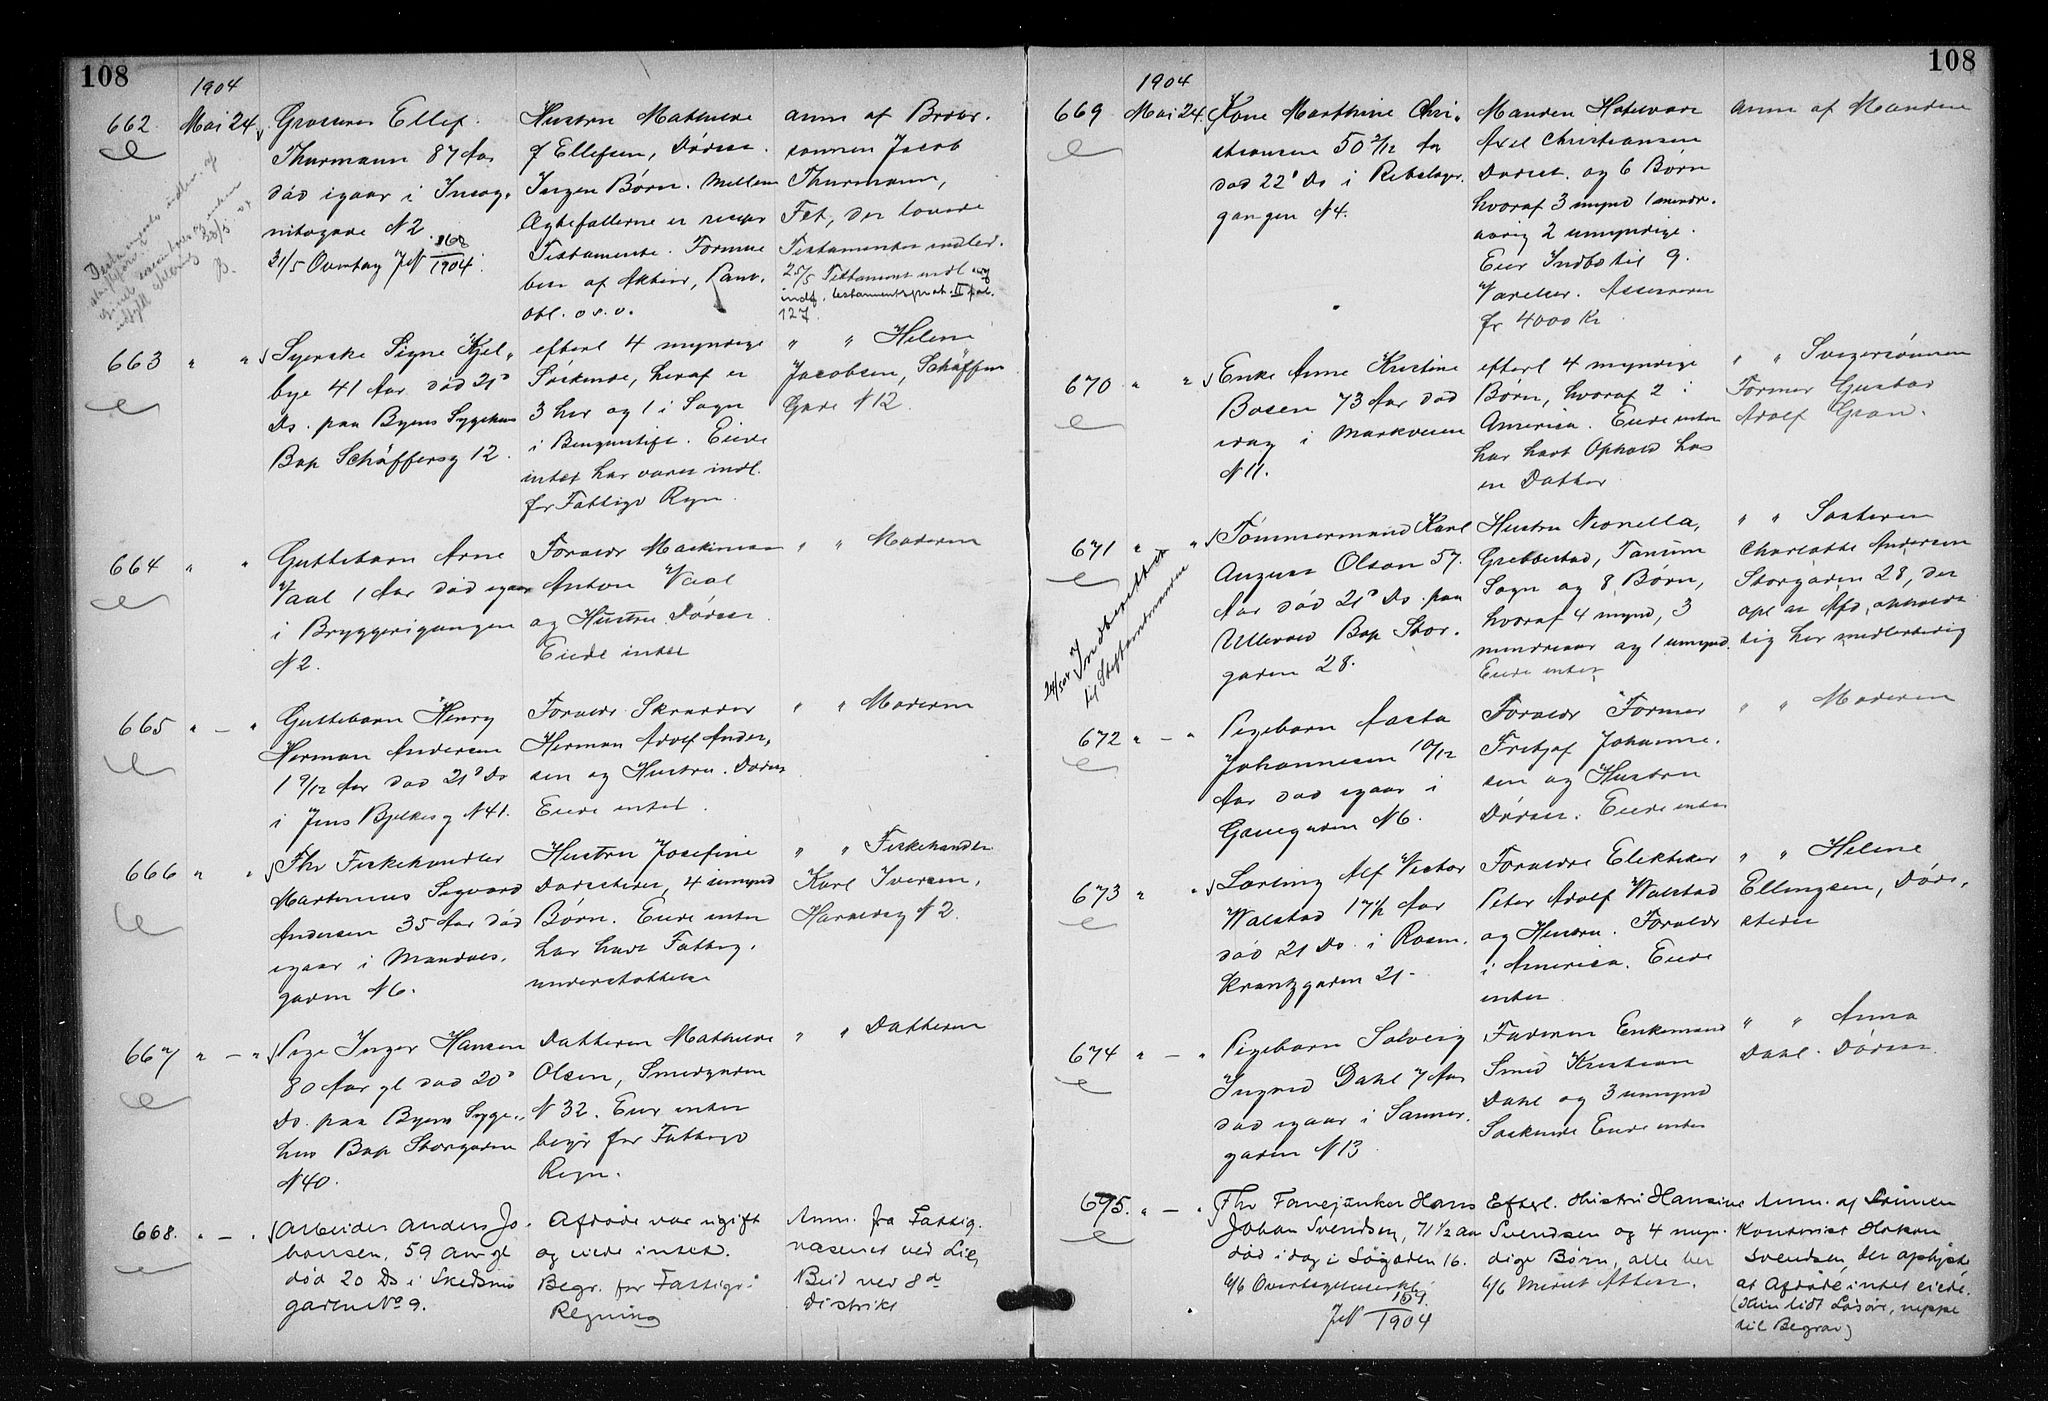 108
1904
662. Mai 24
Grosserer Ellef
Thurmann 87 Aar
død igaar i Incog-
nitogade N 2
31/5 Overtag JN 168/1904.
Hustru Mathilde
f Ellefsen, Dødsa.
Ingen Børn. Mellem
Ægtefællerne er
Testamente. Formue
ben af Aktier, Pant.
Obl. o s. v.
anm af Bror-
sønnen Jacob
Thurmann,
Fet, der lovede
Testamentet indlev.
25/5 Testament indl og
indf. testamentsprot. II fol.
127
663 " "
Syerske Signe Kjel-
bye 41 Aar død 21'
Ds. paa Byens Sygehus
Bop Schäffersg 12.
efterl 4 myndige
Søskende, heraf er
3 her og 1 i Sogn
i Bergenstift. Eiede
intet har været indl.
for Fattigv Regn.
" " Helene
Jacobsen, Schäffers
Gade N 12.
664 " "
Guttebarn Arne
Vaal 1 Aar død igaar
i Bryggerigangen
N 2.
Foræld Maskinist
Anton Vaal
og Hustru Dødssa
Eiede intet
" " Moderen
665 " — "
Guttebarn Henry
Herman Andersen
1 9/12 Aar død 21' Ds
i Jens Bjelkesg N 41.
Foræld. Skrædder
Herman Adolf Ander-
sen og Hustru. Dødssa
Eiede intet.
" " Moderen
666 " "
Fhv Fiskehandler
Martinius Sigvard
Andersen 35 Aar død
igaar i Mandals-
gaden N 6.
Hustru Josefine
Dødsstedet, 4 umynd
Børn. Eiede intet
har havt Fattig-
understøttelse
" " Fiskehandler
Karl Iversen,
Hausmsg N 2.
667 " — "
Pige Inger Hansen
80 Aar gl død 20'
Ds. paa Byens Syge-
hus Bop Storgaden
N 40.
Datteren Mathilde
Olsen, Smedgaden
N 32. Eier intet
begr for Fattigv
Regn.
" " Datteren
668. " — "
Arbeider Anders Jo-
hansen, 59 Aar gl
død 20 Ds i Skedsmo
gaden No 9.
Afdøde var ugift
og eiede intet.
Begr. for Fattigv
Regning
Anm. fra Fattig-
væsenet ved Lie,
Beid ved 8d
Distrikt
108
1904
669 Mai 24.
Kone Marthine Chri-
stiansen 50 2/12 Aar
død 22' Ds i Rebslager-
gangen N 4.
Manden
Axel Christiansen
Dødsst. og 6 Børn
hvoraf 3 mynd 1 mindre-
aarig 2 umyndige.
Eier Indbo til 9.
Værelser. Assureret
for 4000 Kr
anm af Manden
670 " "
Enke Anne Kristine
Bosen 73 Aar død
idag i Markveien
N 11.
efterl 4 myndige
Børn, hvoraf 2 i
America. Eiede intet
har havt Ophold hos
en Datter
" " Svigersønnen
Former Gustav
Adolf Gran.
671 " "
24/5 04 Indberettet
til Stiftamtmanden
Tømmermand Karl
August Olson 57.
Aar død 21' Ds. paa
Ullevold Bop Stor-
gaden 28.
Hustru Neonella,
Grebbestad, Tanum
Sogn og 8 Børn,
hvoraf 4 mynd, 3
mindreaar og 1 umynd.
Eiede intet
" " Søsteren
Charlotte Andersen
Storgaden 28, der
opl at Afd. opholdt
sig her midlertidig
672 " — "
Pigebarn Aasta
Johannesen 10/12
Aar død igaar i
Gøtegaden N 6.
Foræld Former
Fritjof Johanne-
sen og Hustru
Dødssa. Eiede intet
" " Moderen
673 " "
Lærling Alf Victor
Walstad 17 1/2 Aar
død 21 Ds. i Rosen-
krantzgaden 21-
Forældre Elektiker
Peter Adolf Walstad
og Hustru. Foræld
i America. Eiede
intet
" " Helene
Ellingsen, Døds-
stedet
674 " — "
Pigebarn Solveig
Ingrid Dahl 7 Aar
død igaar i Sanner-
gaden N 13
Faderen Enkemand
Smed Kristian
Dahl og 3 umynd
Søskende Eiede intet
" " Anna
Dahl. Dødssa
675. " — "
Fhv Fanejunker Hans
Johan Svendsen, 71 1/2 aar
død idag i Søgaden 16.
6/6 Overtagelseserkl.
JN 171/1904
Efterl. Hustru Hansine
Svendsen og 4 myn-
dige Børn, alle her
6/6 Meddelt Attest.
Anm. af Sønnen
Kontorist Hakon
Svendsen, der oplyste
at Afdøde intet eiede.
(Kun lidt Løsøre, neppe
til Begrav)